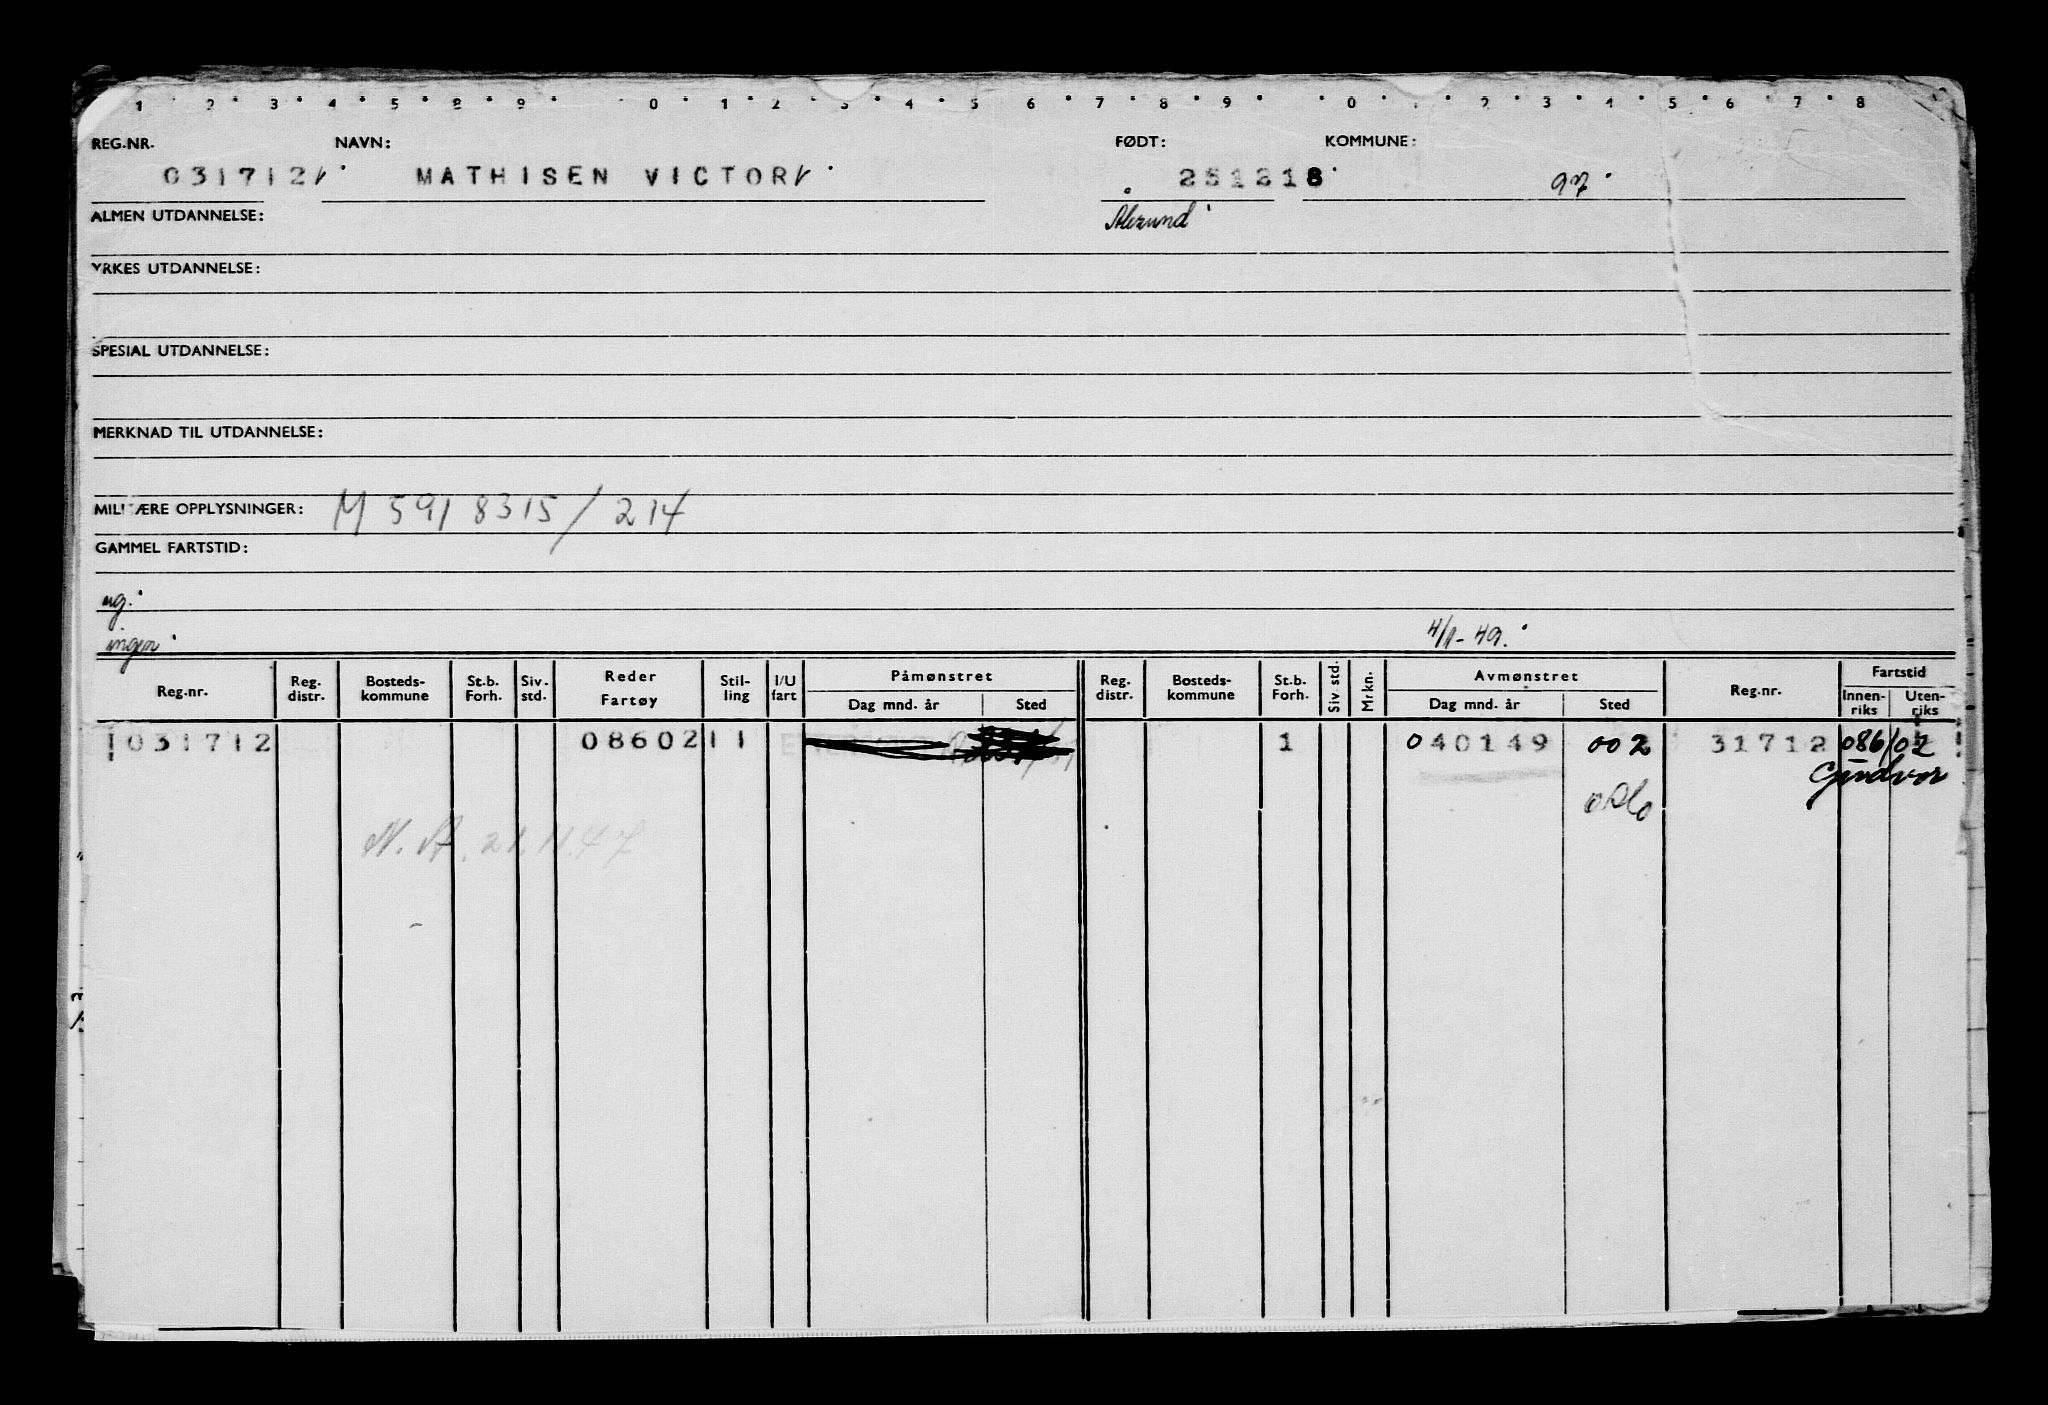 1 2 3 4 5 8 9 0 1 2 3 4 5 6 7 8 9 0 1 2 3 4 5 6 7 8
REG.NR. NAVN: FØDT: KOMMUNE:
031712 MATHISEN VICTOR 251218 97
ALMEN UTDANNELSE: Ålesund
YRKES UTDANNELSE:
SPESIAL UTDANNELSE:
MERKNAD TIL UTDANNELSE:
MILITÆRE OPPLYSNINGER: M 5918315/214
GAMMEL FARTSTID:
ug.
ingen 4/1-49.
Reg.nr. Reg. distr. Bosteds-kommune St.b. Forh. Siv. std. Reder Fartøy Stil-ling I/U fart Påmønstret Dag mnd. år Sted Reg. distr. Bosteds-kommune St.b. Forh. Siv std. Mrkn. Avmønstret Dag mnd. år Sted Reg.nr. Fartstid Innen-riks Uten-riks
031712 08602 11 1 040149 002 31712 086/02
Gudvor
Oslo
N.A. 21.11.47